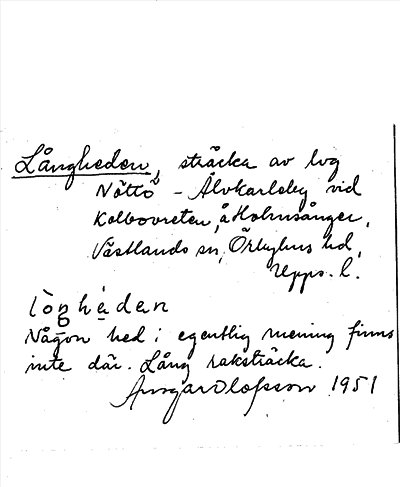 Långheden, sträcka av lvg
Nöttö - Älvkarleby vid
Kolbovreten, å Holmsånger,
Västlands sn, Örbyhus hd,
Upps. l.
lòŋhèden
Någon hed i egentlig mening finns
inte där. Lång raksträcka.
Ansgar Olofsson 1951